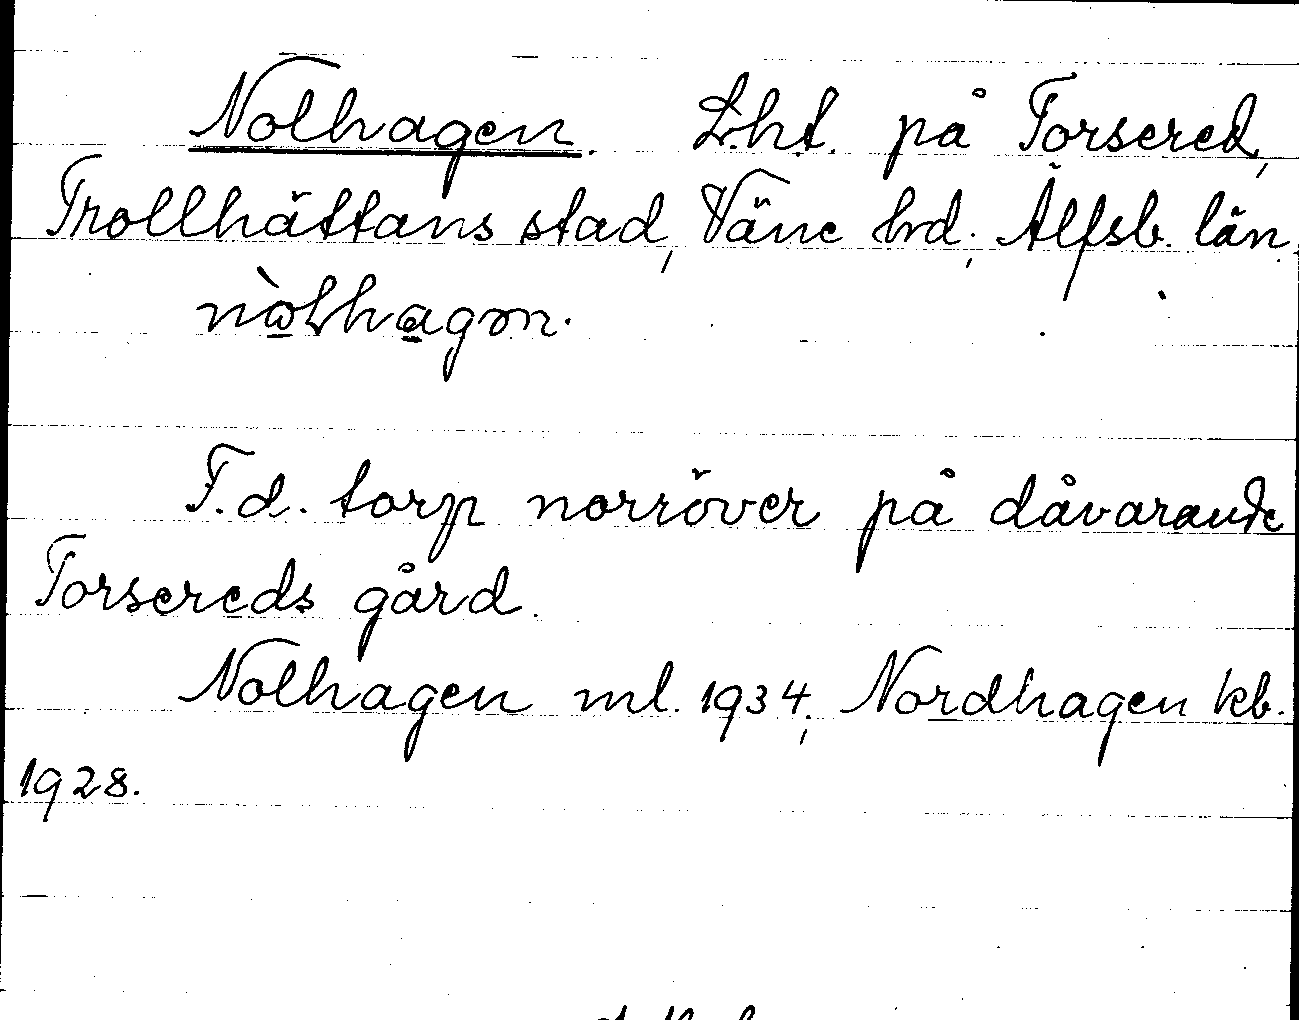 Nolhagen. L.h.t. på Torsered,
Trollhättans stad, Väne hd, Älfsb. län.
nòlhagən.
F.d. torp norröver på dåvarande
Torsereds gård.
Nolhagen ml. 1934, Nordhagen kb.
1928.